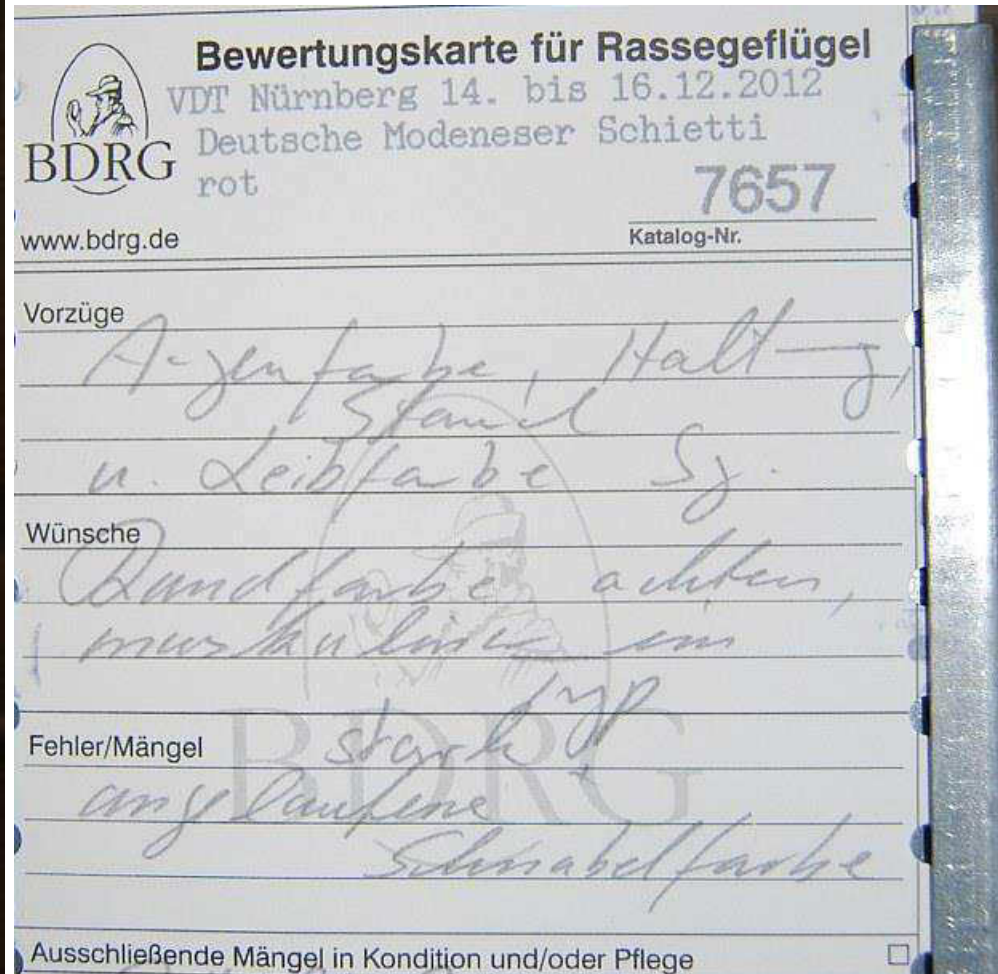 Bewertungskarte für Rassegeflügel
VDT Nürnberg 14. bis 16.12.2012
Deutsche Modeneser Schietti
BDRG
rot
7657
www.bdrg.de
Katalog-Nr.
Vorzüge
Augenfarbe, Haltung,
Stand
u. Leibfarbe Sg.
Wünsche
achten,
im
Typ
BDRG
Fehler/Mängel
stark
angelaufene
Schnabelfarbe
Ausschließende Mängel in Kondition und/oder Pflege